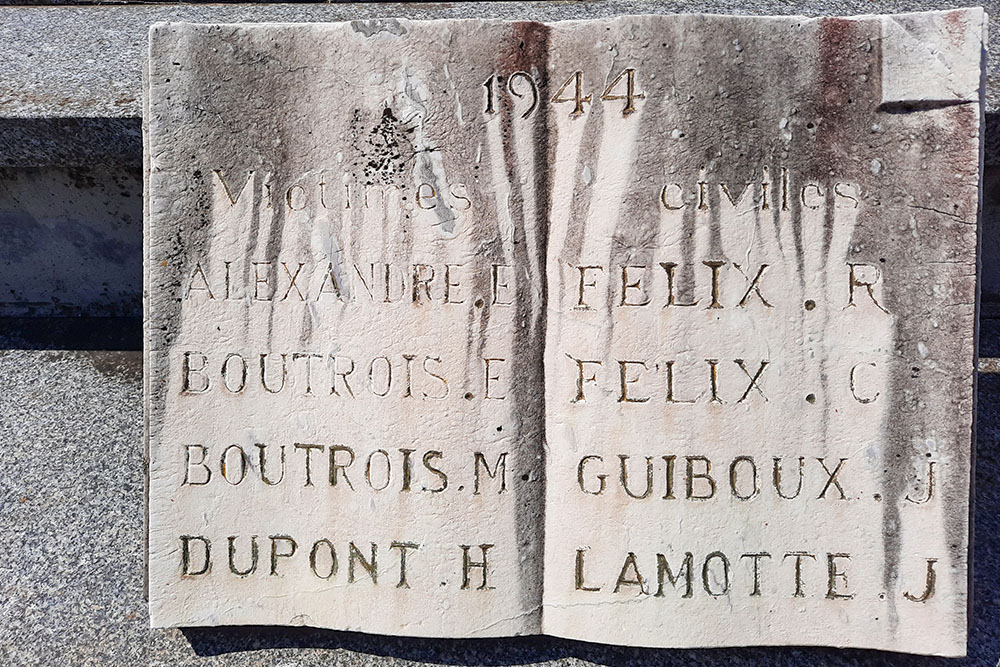 1944
Victimes civiles
ALEXANDRE.E
BOUTROIS.E
BOUTROIS.M
DUPONT.H
FELIX.R
FELIX.C
GUIBOUX.J
LAMOTTE.J